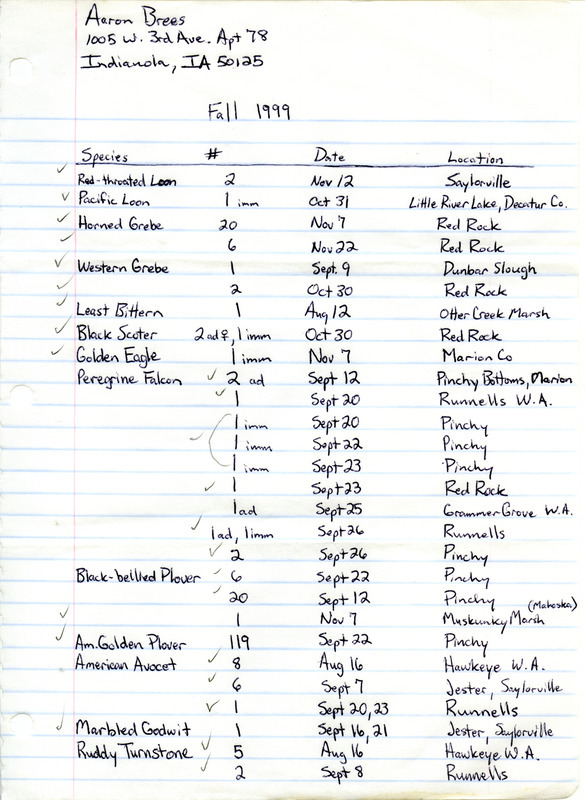 Aaron Brees
1005 W. 3rd Ave. Apt 78
Indianola, IA 50125
Fall 1999
Species # Date Location
✓ Red-throated Loon 2 Nov 12 Saylorville
✓ Pacific Loon 1 imm Oct 31 Little River Lake, Decatur Co.
✓ Horned Grebe 20 Nov 7 Red Rock
✓ 6 Nov 22 Red Rock
✓ Western Grebe 1 Sept. 9 Dunbar Slough
✓ 2 Oct 30 Red Rock
✓ Least Bittern 1 Aug 12 Otter Creek Marsh
✓ Black Scoter 2 ad ♀, 1 imm Oct 30 Red Rock
✓ Golden Eagle 1 imm Nov 7 Marion Co
Peregrine Falcon ✓ 2 ad Sept 12 Pinchy Bottoms, Marion
✓ 1 Sept 20 Runnells W.A.
1 imm Sept 20 Pinchy
✓ 1 imm Sept 22 Pinchy
1 imm Sept 23 Pinchy
✓ 1 Sept 23 Red Rock
1 ad Sept 25 Grammer Grove W.A.
✓ 1 ad, 1 imm Sept 26 Runnells
✓ 2 Sept 26 Pinchy
Black-bellied Plover ✓ 6 Sept 22 Pinchy
✓ 20 Sept 12 Pinchy
✓ 1 Nov 7 Muskunky Marsh (Mahaska)
✓ Am. Golden Plover 119 Sept 22 Pinchy
American Avocet ✓ 8 Aug 16 Hawkeye W.A.
✓ 6 Sept 7 Jester, Saylorville
✓ 1 Sept 20, 23 Runnells
✓ Marbled Godwit 1 Sept 16, 21 Jester, Saylorville
Ruddy Turnstone ✓ 5 Aug 16 Hawkeye W.A.
✓ 2 Sept 8 Runnells